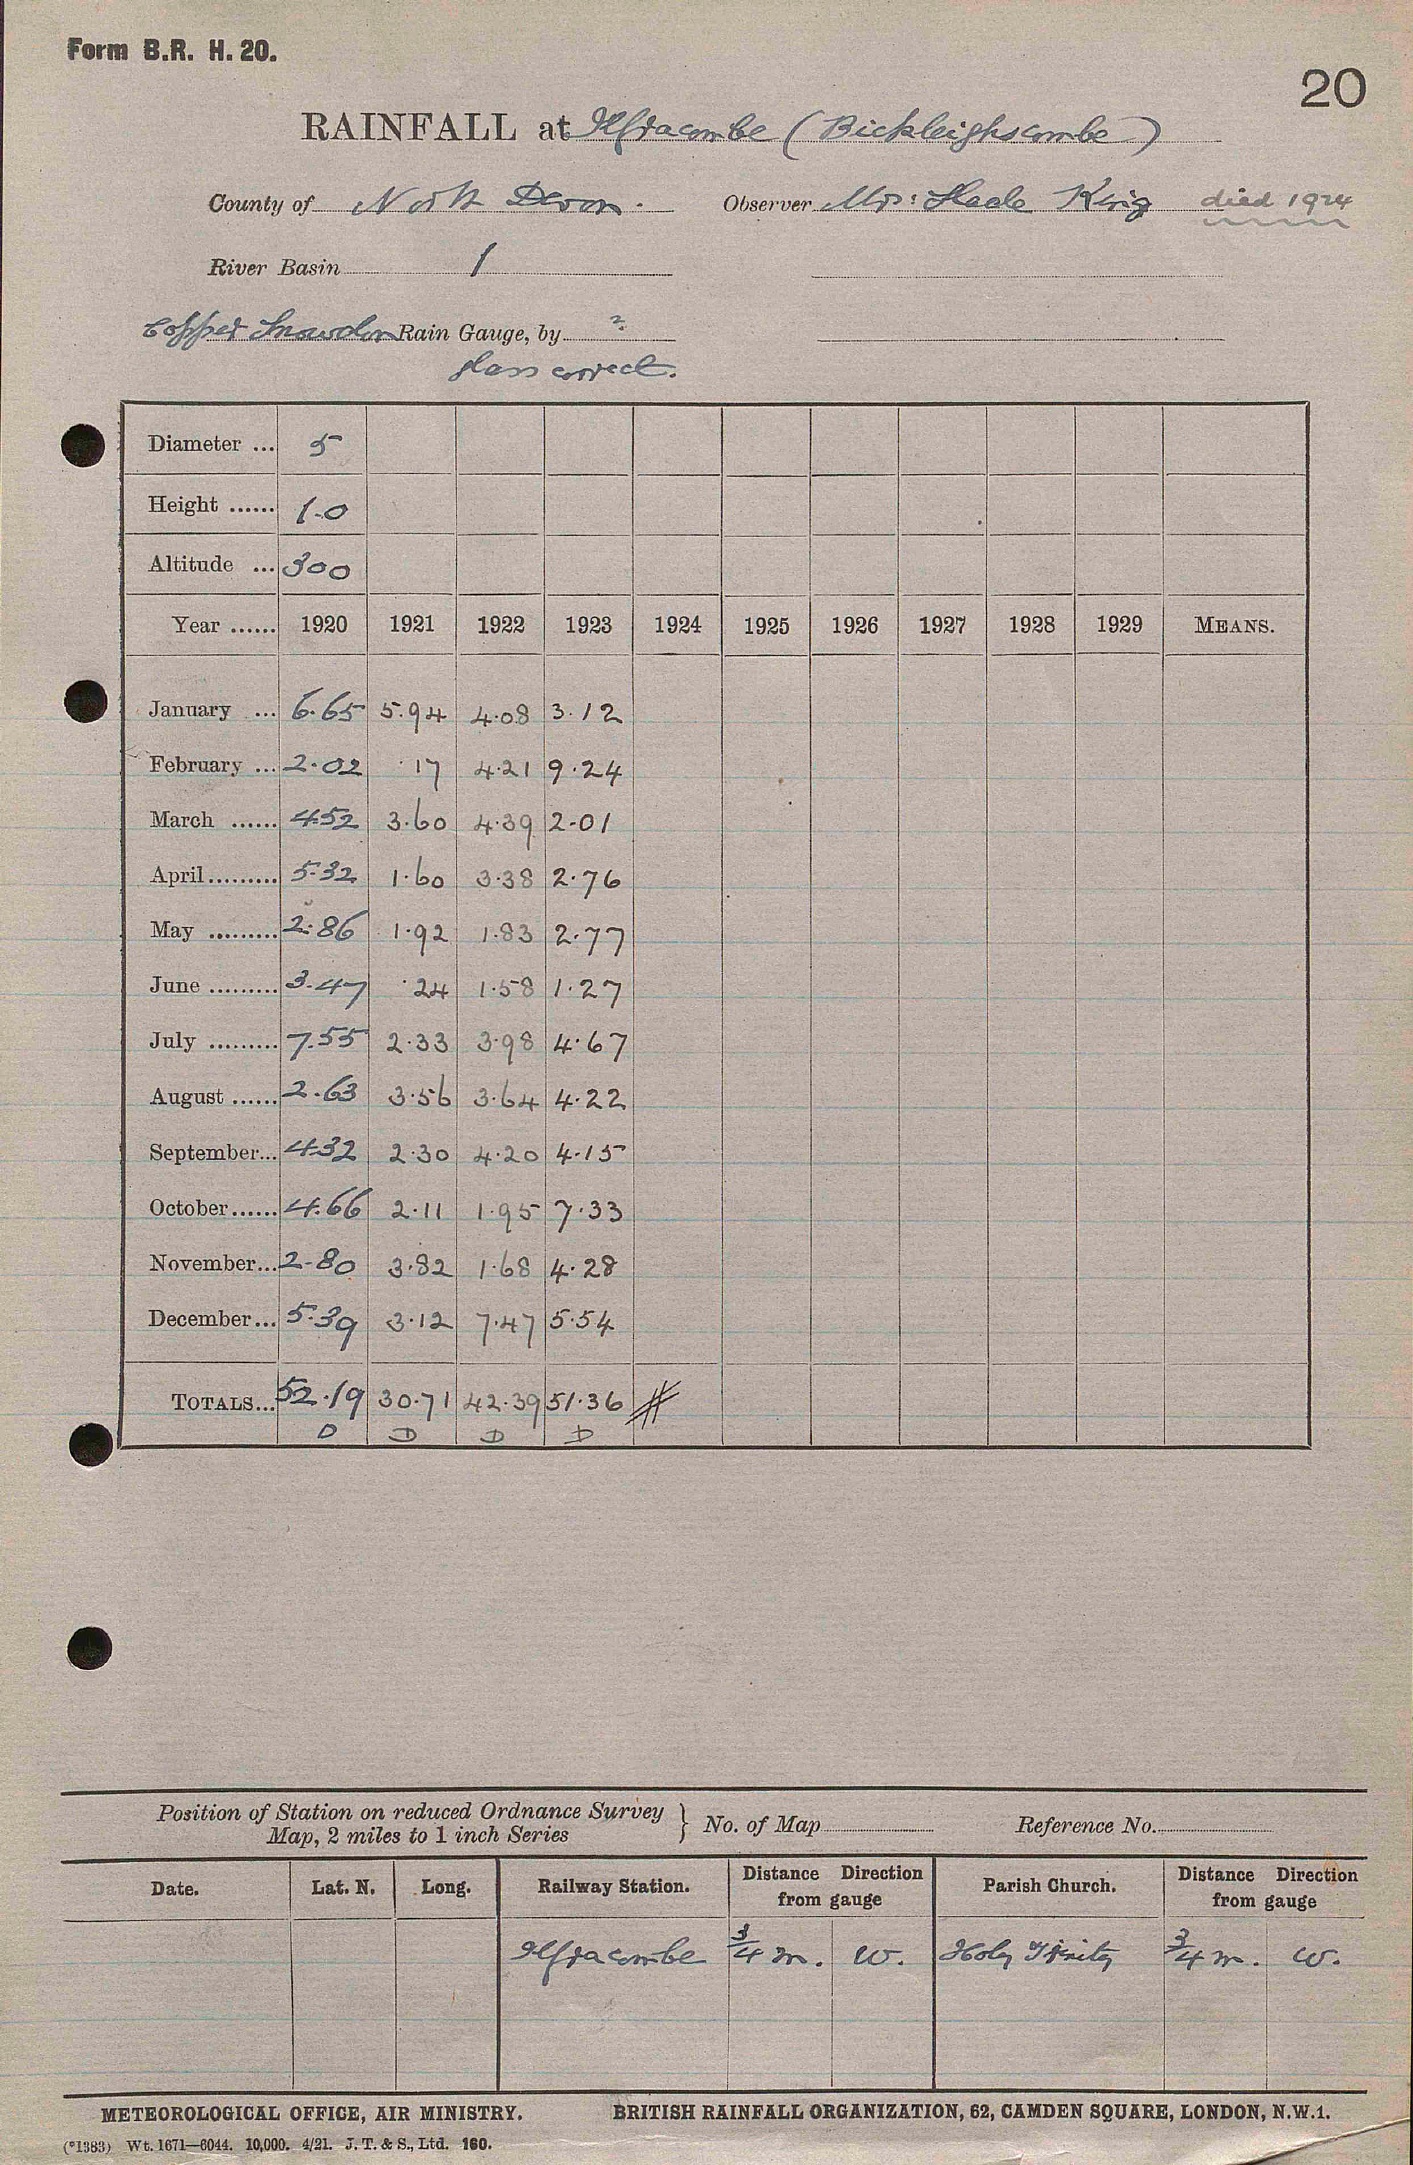 Form B.R. H. 20.
20
RAINFALL at Ilfracombe (Bickleighscombe)
County of North Devon. Observer Mrs: Slade King died 1924
River Basin 1
Copper Snowdon Rain Gauge, by ?
glass correct.
Diameter ... 5
Height ...... 1.0
Altitude ... 300
Year ...... 1920 1921 1922 1923 1924 1925 1926 1927 1928 1929 MEANS.
January ... 6.65 5.94 4.08 3.12
February ... 2.02 .17 4.21 9.24
March ...... 4.52 3.60 4.39 2.01
April......... 5.32 1.60 3.38 2.76
May ......... 2.86 1.92 1.83 2.77
June ......... 3.47 .24 1.58 1.27
July ......... 7.55 2.33 3.98 4.67
August ...... 2.63 3.56 3.64 4.22
September... 4.32 2.30 4.20 4.15
October...... 4.66 2.11 1.95 7.33
November... 2.80 3.82 1.68 4.28
December... 5.39 3.12 7.47 5.54
TOTALS... 52.19 30.71 42.39 51.36
D D D D
Position of Station on reduced Ordnance Survey
Map, 2 miles to 1 inch Series } No. of Map Reference No.
Date. Lat. N. Long. Railway Station. Distance Direction from gauge Parish Church. Distance Direction from gauge
Ilfracombe 3/4 m. W. Holy Trinity 3/4 m. W.
METEOROLOGICAL OFFICE, AIR MINISTRY. BRITISH RAINFALL ORGANIZATION, 62, CAMDEN SQUARE, LONDON, N.W.1.
(*1383) Wt. 1671—6044. 10,000. 4/21. J. T. & S., Ltd. 160.